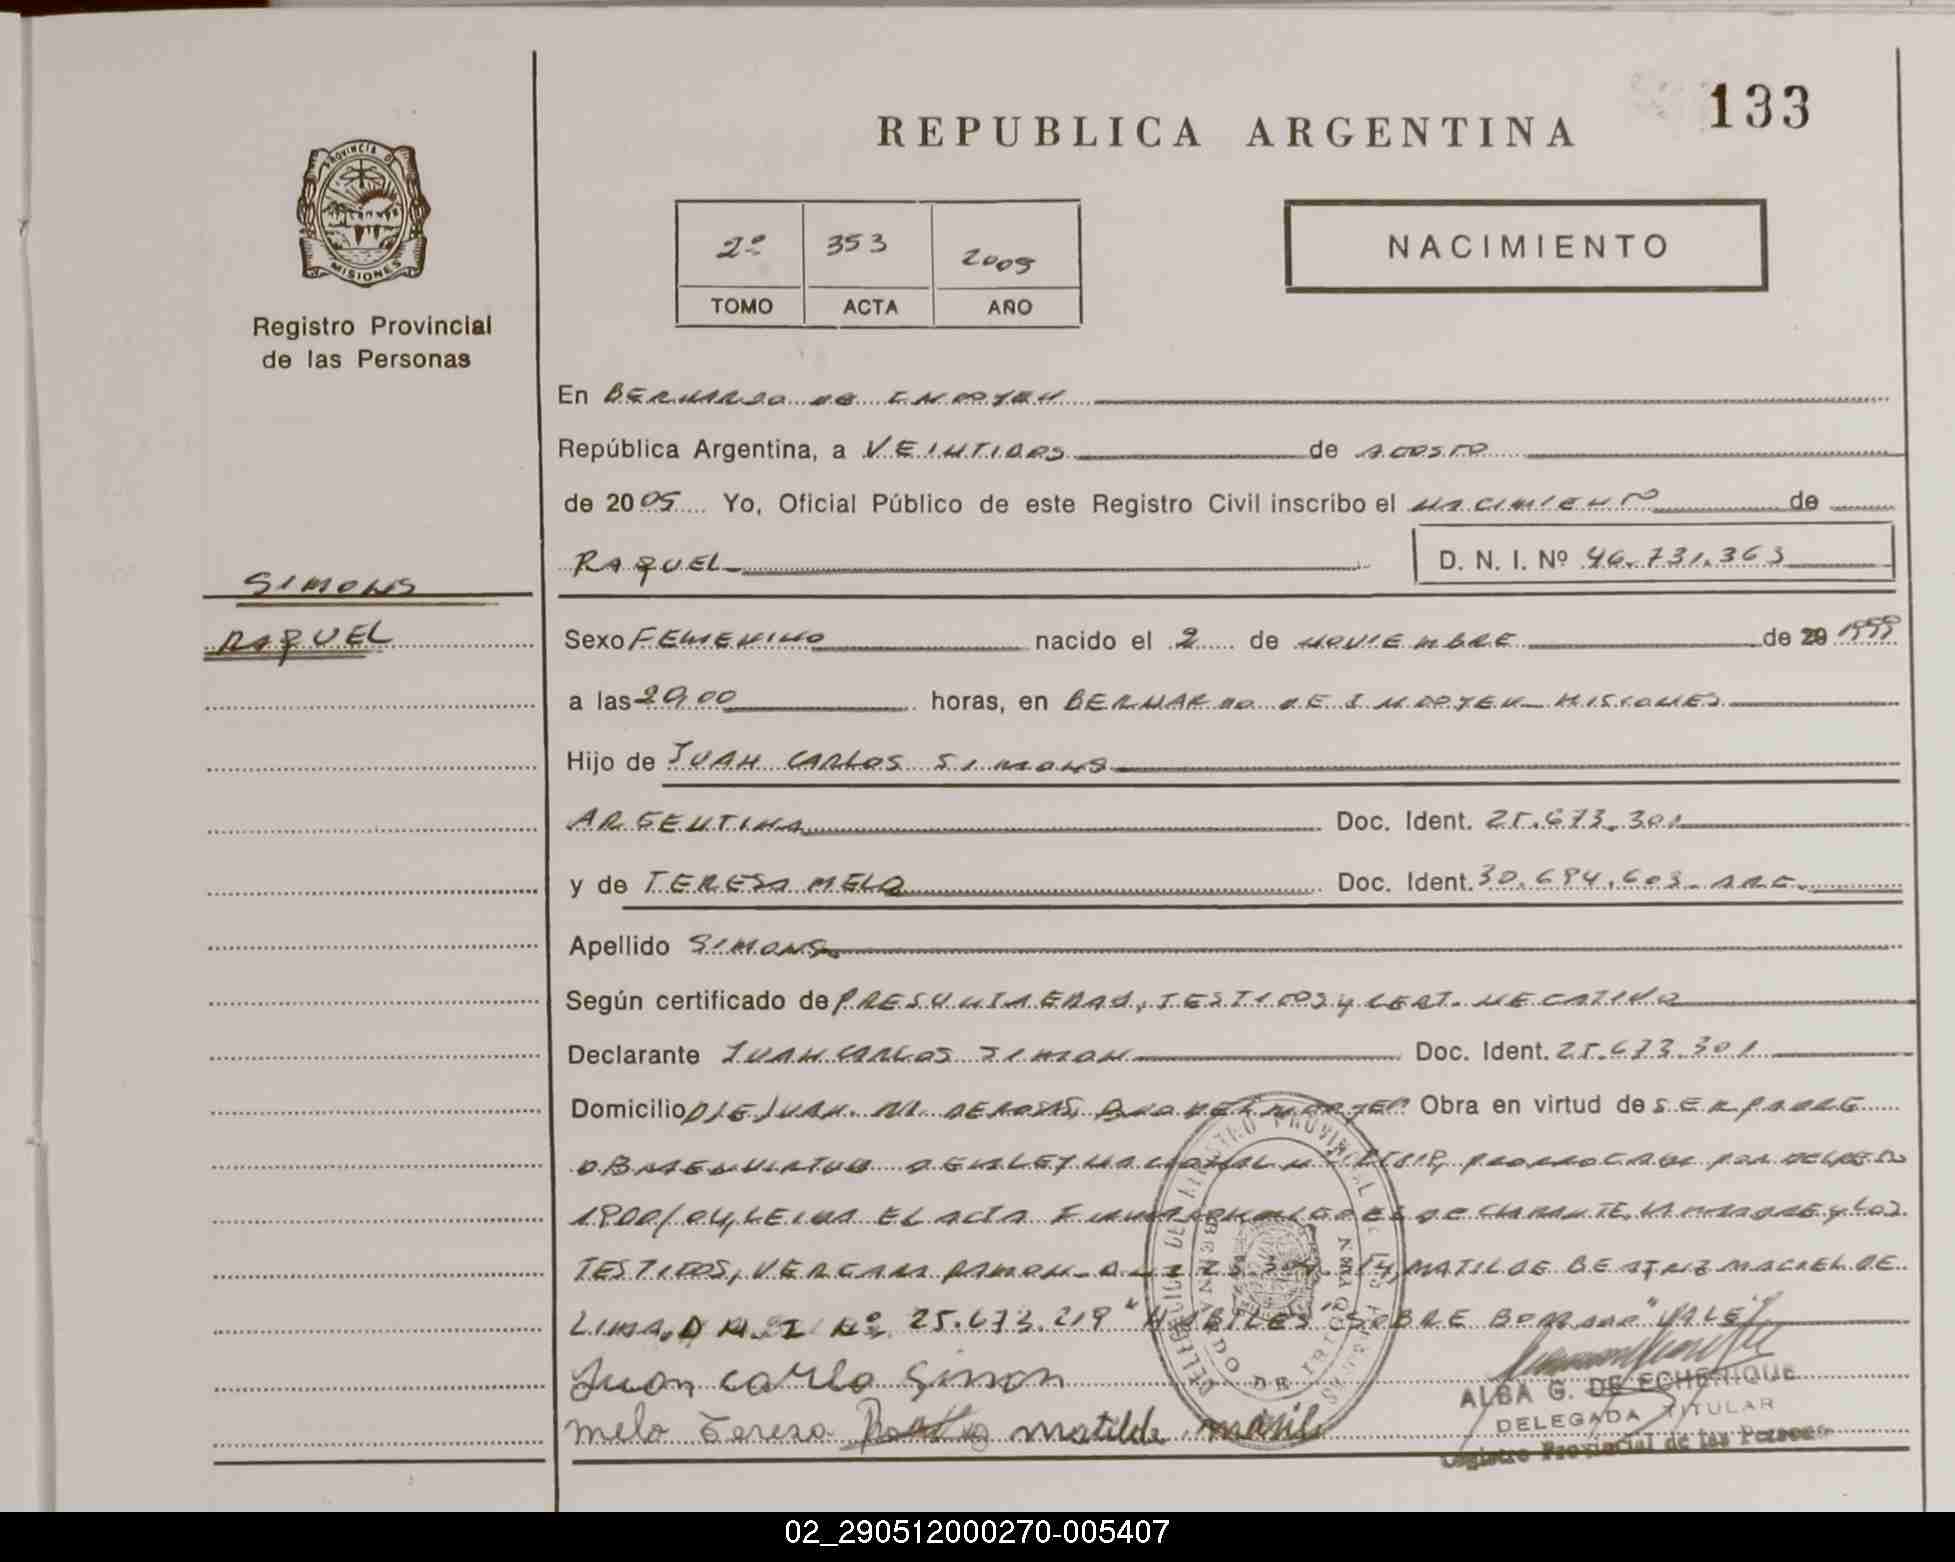 133
REPUBLICA ARGENTINA
PROVINCIA DE
MISIONES
Registro Provincial
de las Personas
2º 353 2005
TOMO ACTA AÑO
NACIMIENTO
En BERNARDO DE IRIGOYEN
República Argentina, a VEINTIDOS de AGOSTO
de 2005 Yo, Oficial Público de este Registro Civil inscribo el NACIMIENTO de
RAQUEL D. N. I. Nº 46.731.363
SIMONS
RAQUEL
Sexo FEMENINO nacido el 2 de NOVIEMBRE de 20 1999
a las 20,00 horas, en BERNARDO DE IRIGOYEN MISIONES
Hijo de JUAN CARLOS SIMONS
ARGENTINA Doc. Ident. 25.673.301
y de TERESA MELO Doc. Ident. 30.694.603 ARG.
Apellido SIMONS
Según certificado de TESTIGOS y CERT. NEGATIVO
Declarante JUAN CARLOS SIMON Doc. Ident. 25.673.301
Domicilio JUAN M. DE ROSAS, Obra en virtud de SER PADRE
OBRA EN VIRTUD DE LA LEY NACIONAL N PRORROGADA POR
1900/04, LEIDA EL ACTA FIRMAN DECLARANTE, LA MADRE y LOS
TESTIGOS, VERGARA RAMON MATILDE BEATRIZ MACIEL DE
LIMA, D N I Nº 25.673.219 "HABILES" "SOBRE BORRADO" VALE
Juan carlo Simon
melo Teresa matilde
DELEGACION DEL REGISTRO PROVINCIAL DE LAS PERSONAS
BERNARDO DE IRIGOYEN
ALBA G. DE ECHERIQUE
DELEGADA TITULAR
Registro Provincial de las Personas
02_290512000270-005407